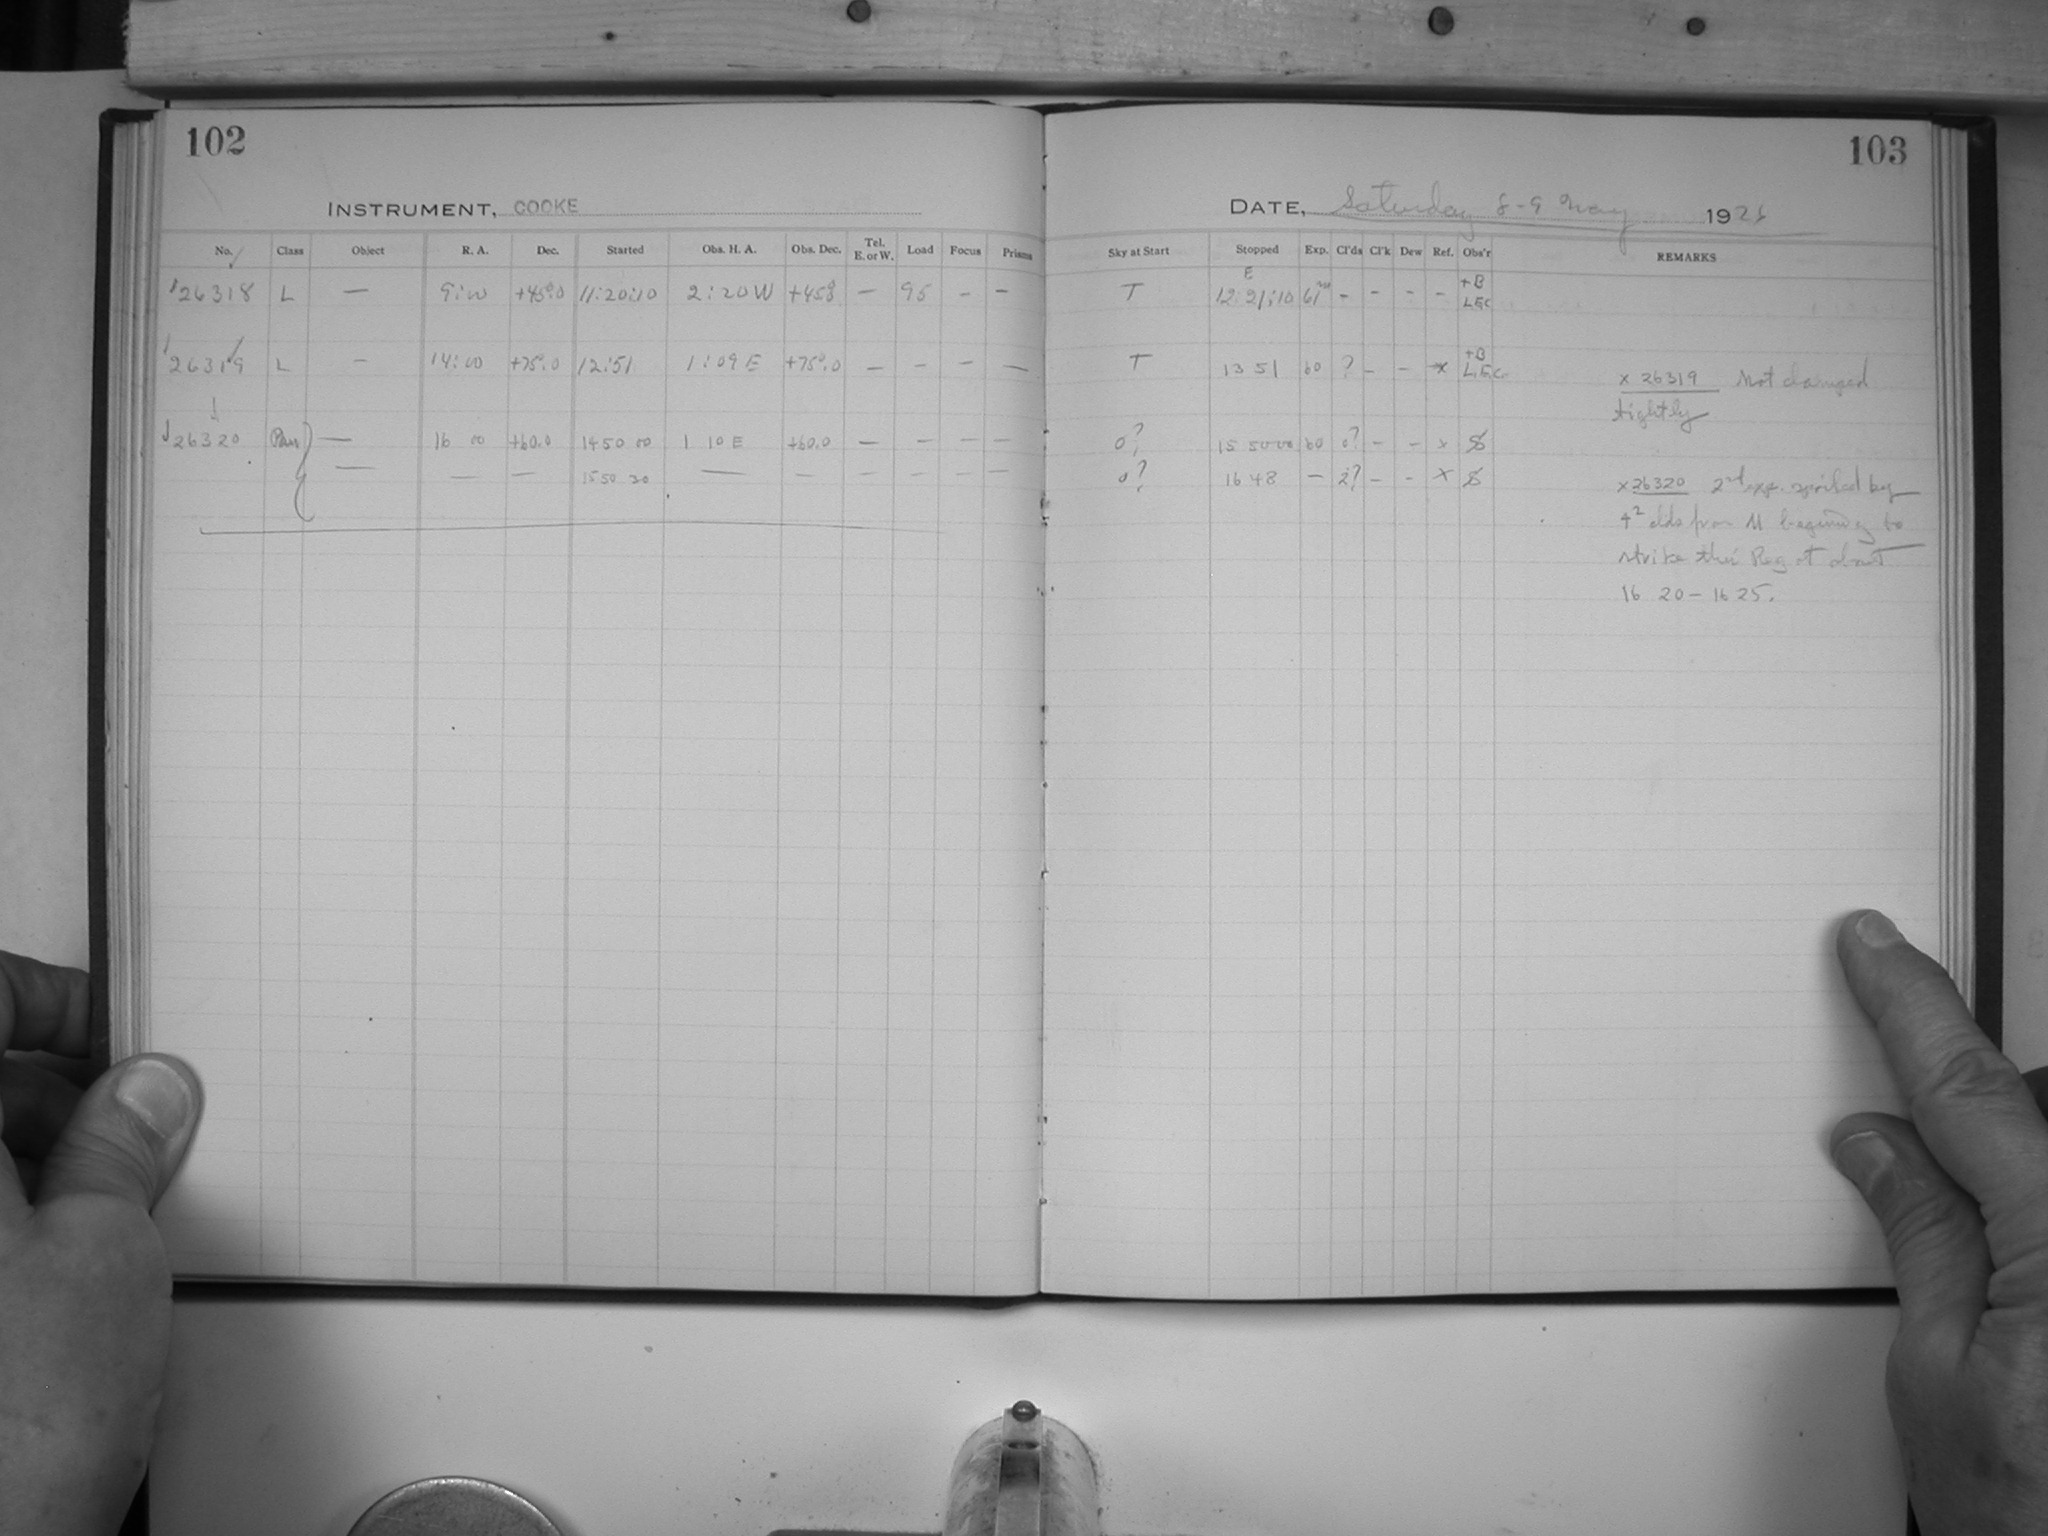 102
INSTRUMENT, COOKE
No. Class Object R. A. Dec. Started Obs. H. A. Obs. Dec. Tel. E. or W. Load Focus Prisms
26318 L — 9:00 +45°.0 11:20:10 2:20 W +45° — 95 — —
26319 L — 14:00 +75°.0 12:51 1:09 E +75°.0 — — — —
26320 — 16 00 +60.0 14 50 00 1 10 E +60.0 — — — —
— — — 15 50 30 — — — — — —
103
DATE, Saturday 8-9 May 1926
Sky at Start Stopped Exp. Cl'ds Cl'k Dew Ref. Obs'r REMARKS
T 12:21:10 61 – – – – +B LEC
T 13 51 60 ? – – x +B L.E.C.
0? 15 50 00 60 0? – – x
0? 16 48 — 2? – – x
x 26319 Not clamped
tightly
x 26320 2nd exp. spoiled by
clds from beginning to
strike this Reg at about
16 20 – 16 25.